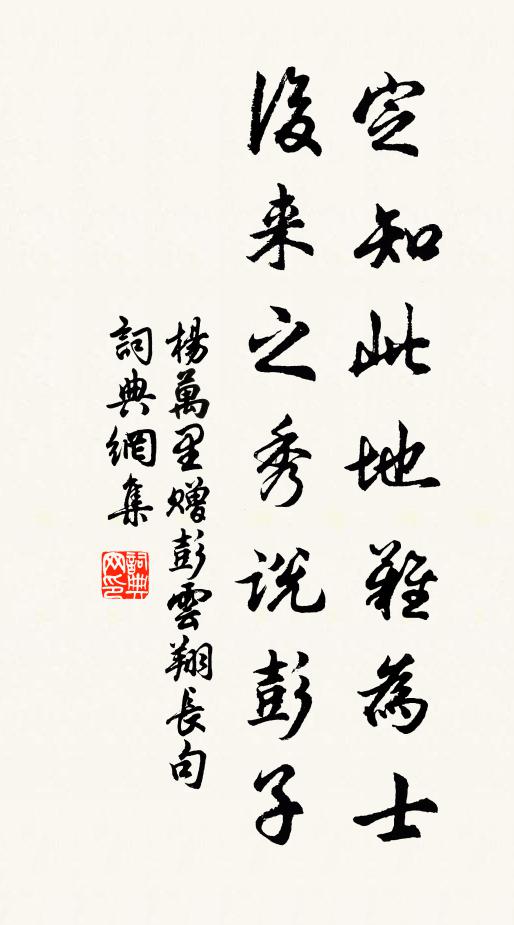 定知此地難為士
後来之秀說彭子
楊萬里贈彭雲翔長句
詞典網集
詞典
网印